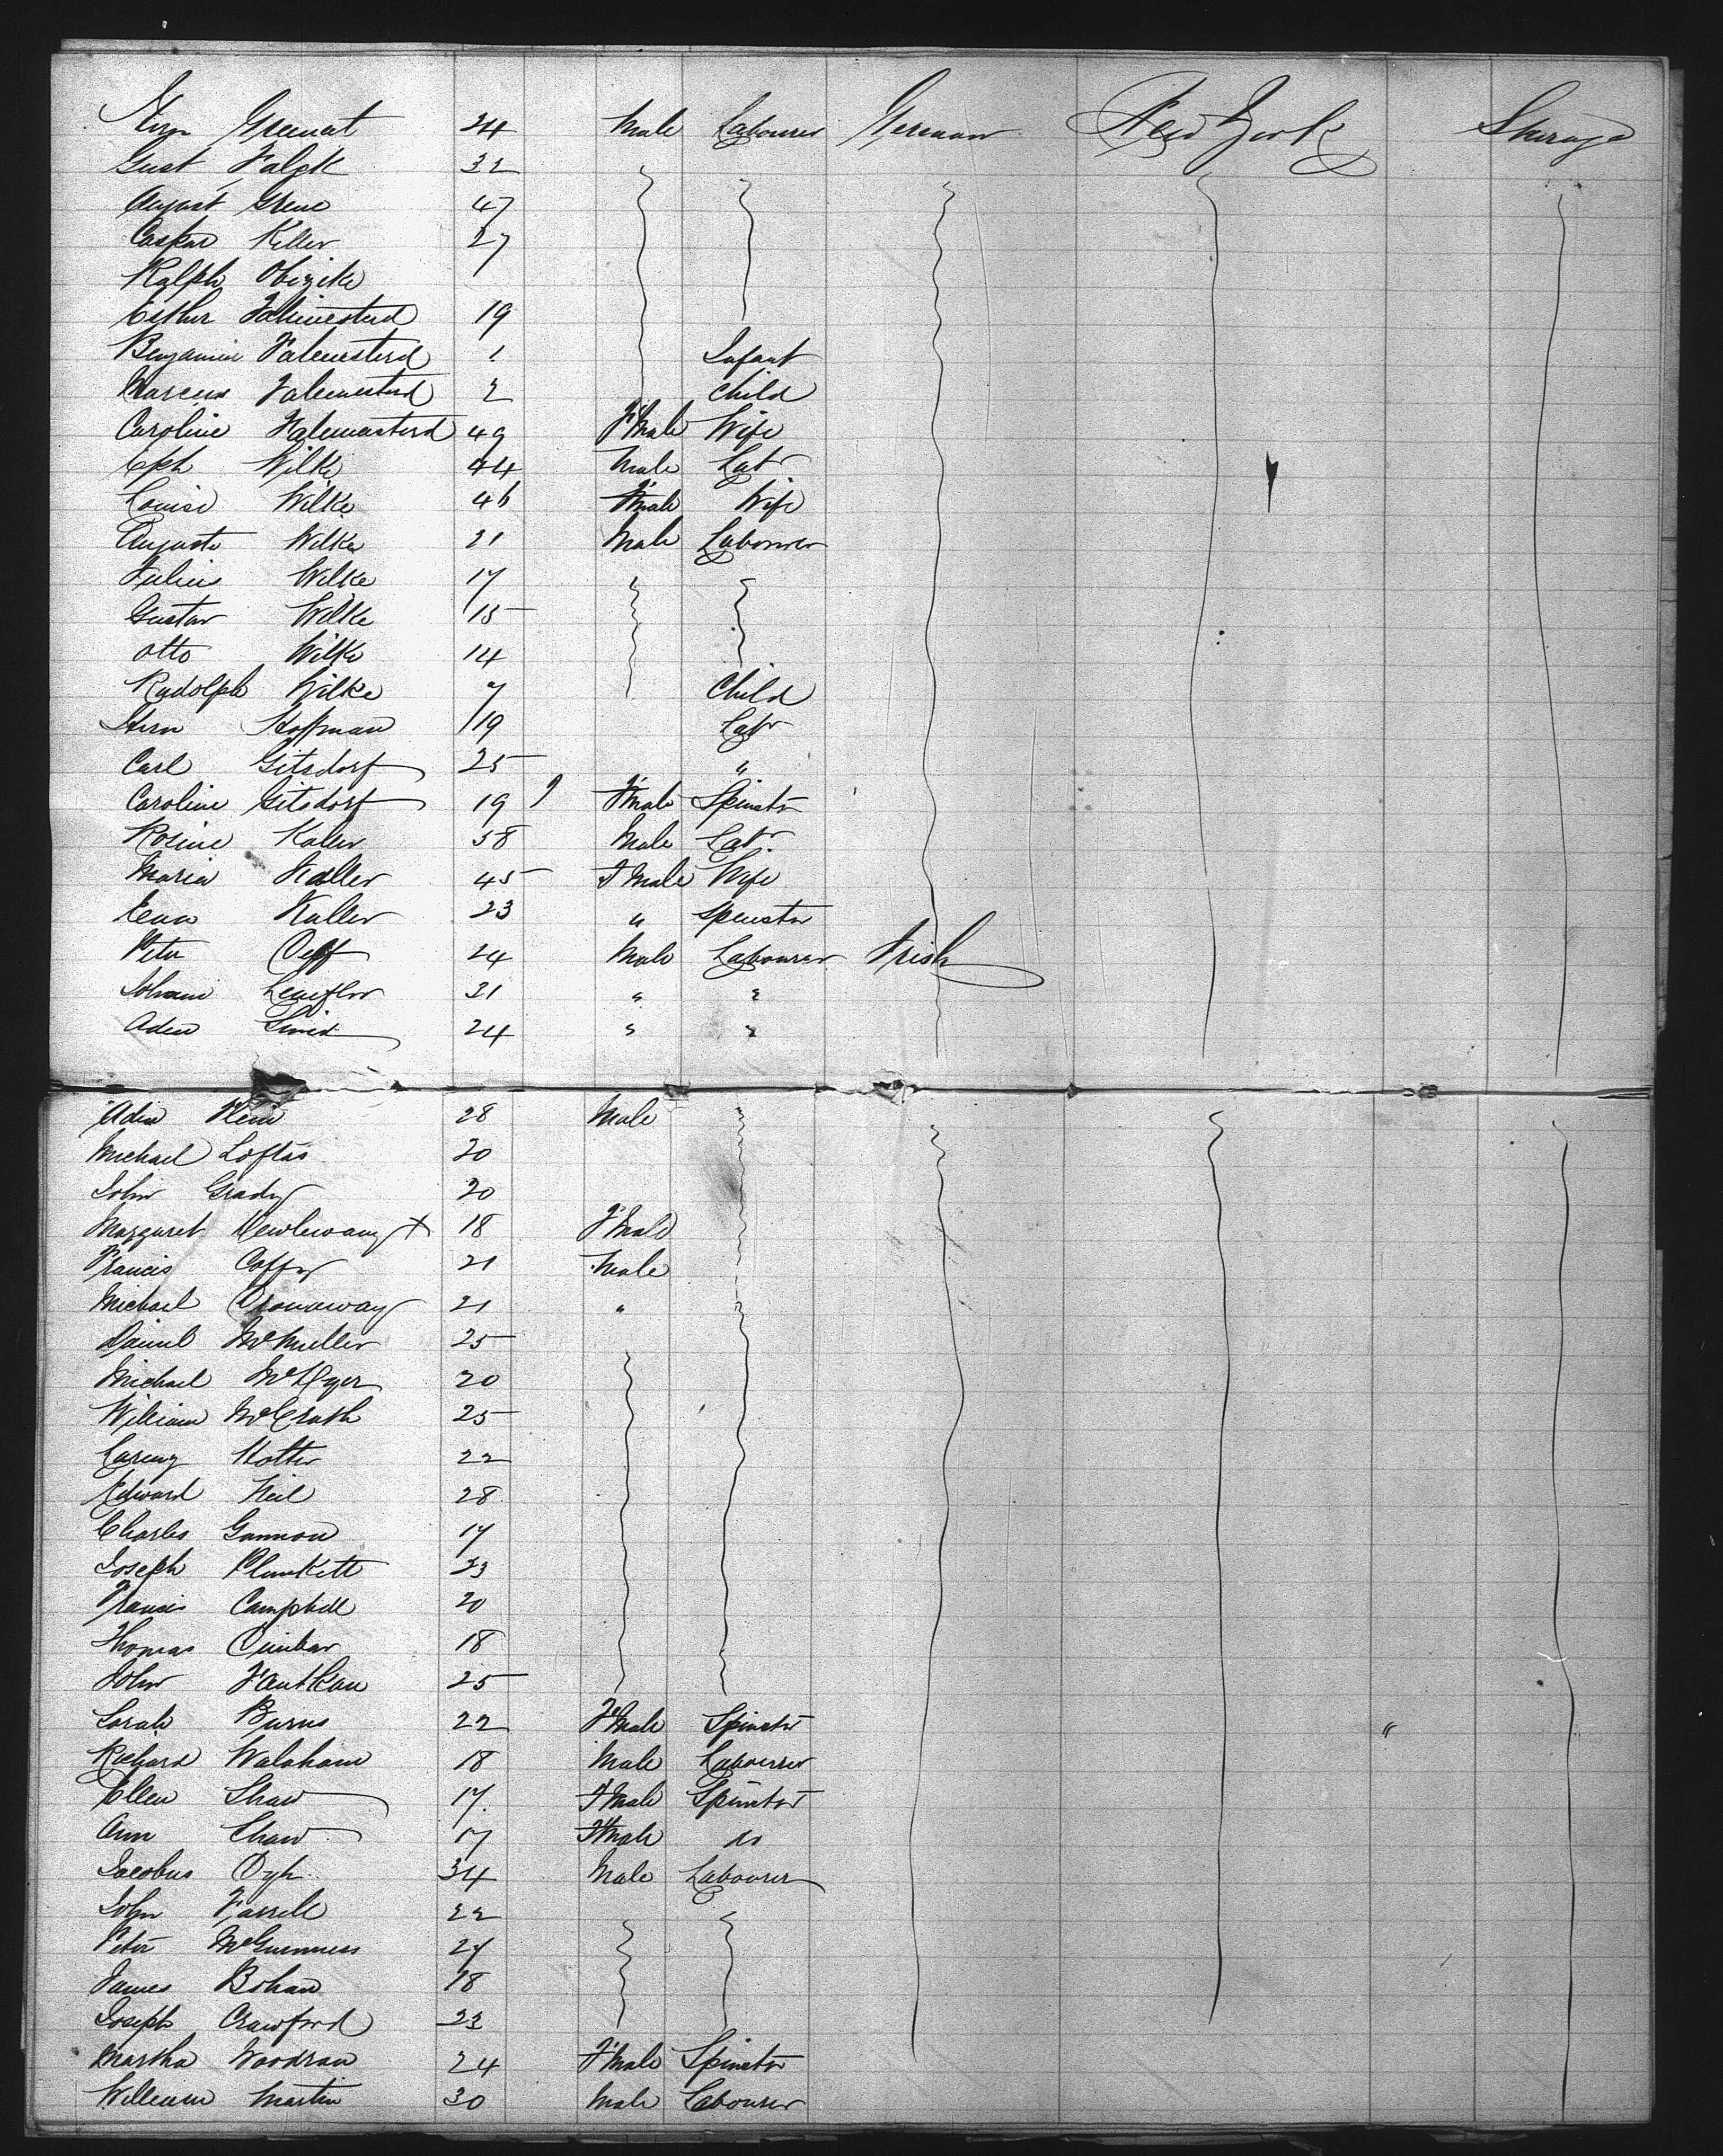 Hirn Greenat 24 Male Labourer German New York Steerage
Gust Falck 32
August Grene 47
Caspar Keller 27
Ralph
Esther 19
Benjamin 1 Infant
Marcus 2 Child
Caroline 49 F'Male Wife
Wilke 44 Male Labr
Louise Wilke 46 F'Male Wife
Auguste Wilke 21 Male Labourer
Julius Wilke 17
Gustav Wilke 15
Otto Wilke 14
Rudolph Wilke 7 Child
Hirn Hoffman 19 Labr
Carl Gitsdorf 25 "
Caroline Gitsdorf 19 F'Male Spinstr
Rosine Kaller 38 Male Labr
Maria Kaller 45 F Male Wife
Kaller 23 " Spinster
Peter 24 Male Labourer Irish
Johann 21 " "
Aden 24 " "
Aden Klein 28 Male
Michael Loftas 20
John Grady 20
Margaret + 18 F'Male
Francis Coffey 21 Male
Michael 21 "
Daniel McMuller 25
Michael 20
William McCrath 25
22
Edward Neil 28
Charles Gannon 17
Joseph Plunkett 23
Francis Campbell 20
Thomas 18
John 25
Sarah Burns 22 F'Male Spinstr "
Richard Walsham 18 Male Labourer
Ellen Shaw 17. F'Male Spinstr
Ann Shaw 17 F'Male do
Jacobus 34 Male Labourer
John Farrell 22
Peter McGuinness 27
James Bohan 18
Joseph Crawford 23
Martha Woodrow 24 F'Male Spinstr
William Martin 30 Male Labourer